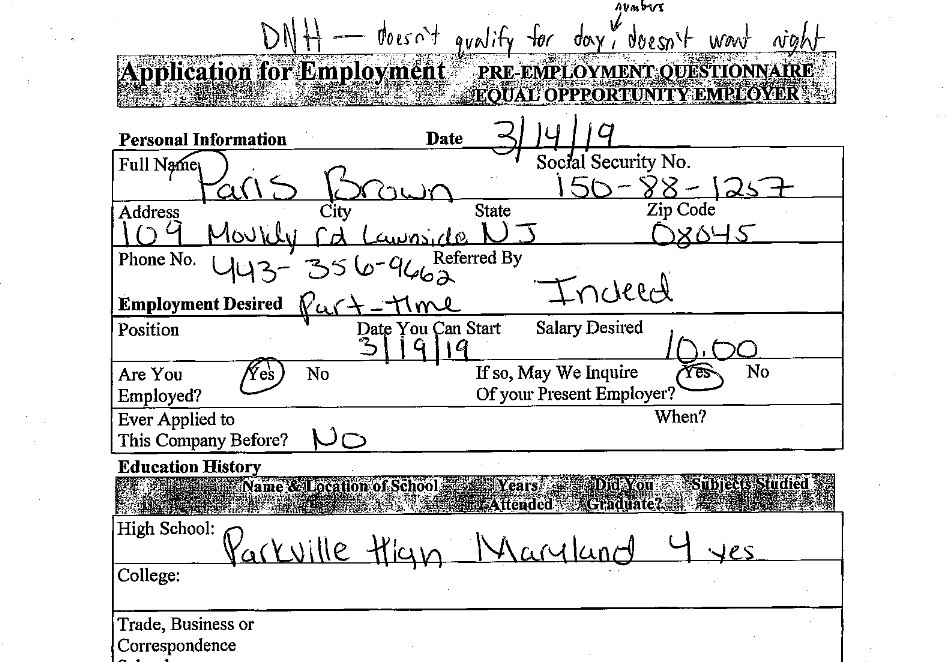 numbers
DNH — doesn't qualify for day, doesn't want night
Application for Employment PRE-EMPLOYMENT QUESTIONNAIRE
EQUAL OPPPORTUNITY EMPLOYER
Personal Information Date 3/14/19
Full Name Social Security No.
Paris Brown 150-88-1257
Address City State Zip Code
109 rd Lawnside NJ 08045
Phone No. 443-356-9662 Referred By
Employment Desired Part-time Indeed
Position Date You Can Start Salary Desired
3/19/19 10.00
Are You Yes No If so, May We Inquire Yes No
Employed? Of your Present Employer?
Ever Applied to When?
This Company Before? NO
Education History
Name & Location of School Years Did You Subjects Studied
Attended Graduate?
High School: Parkville High Maryland 4 yes
College:
Trade, Business or
Correspondence